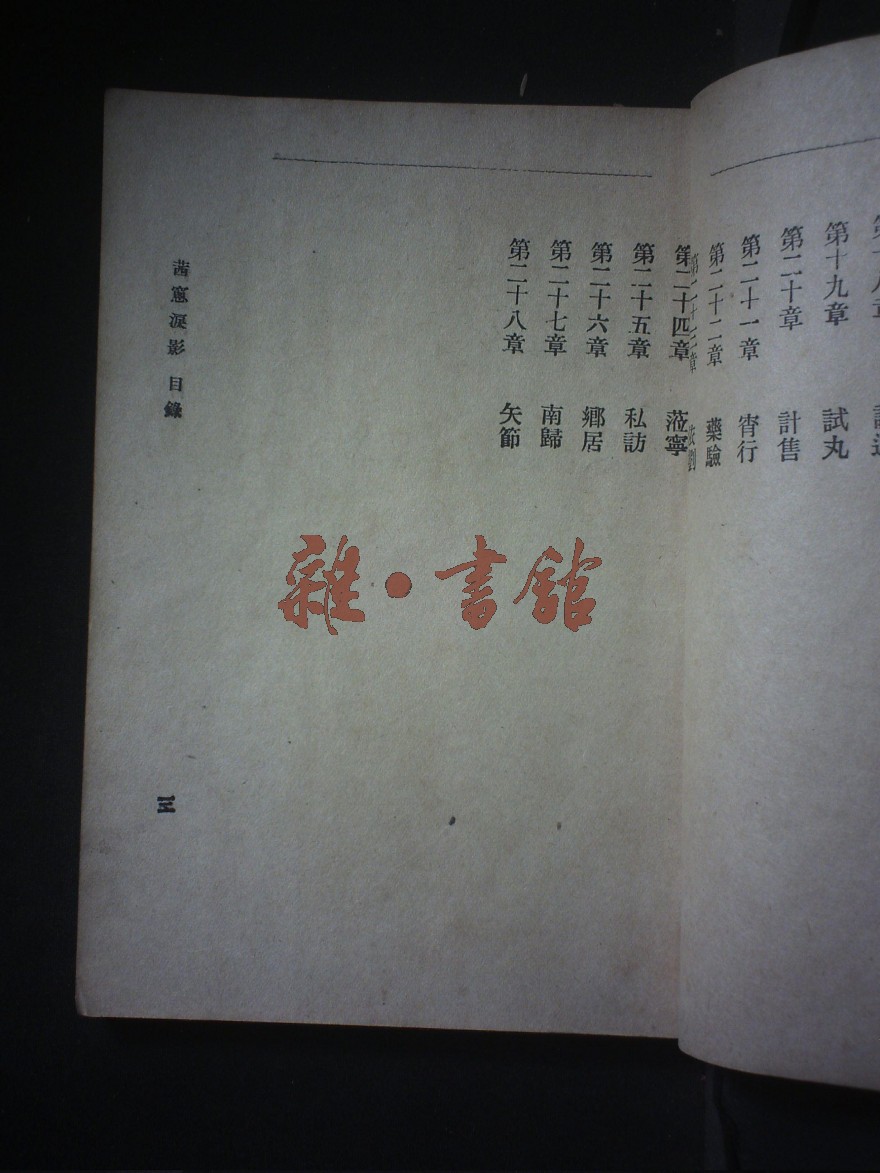 第十九章 試丸
第二十章 計售
第二十一章 宵行
第二十二章 藥驗
第二十三章
第二十四章 蒞寧
第二十五章 私訪
第二十六章 鄉居
第二十七章 南歸
第二十八章 矢節
茜窻淚影 目錄
三
雜·書舘